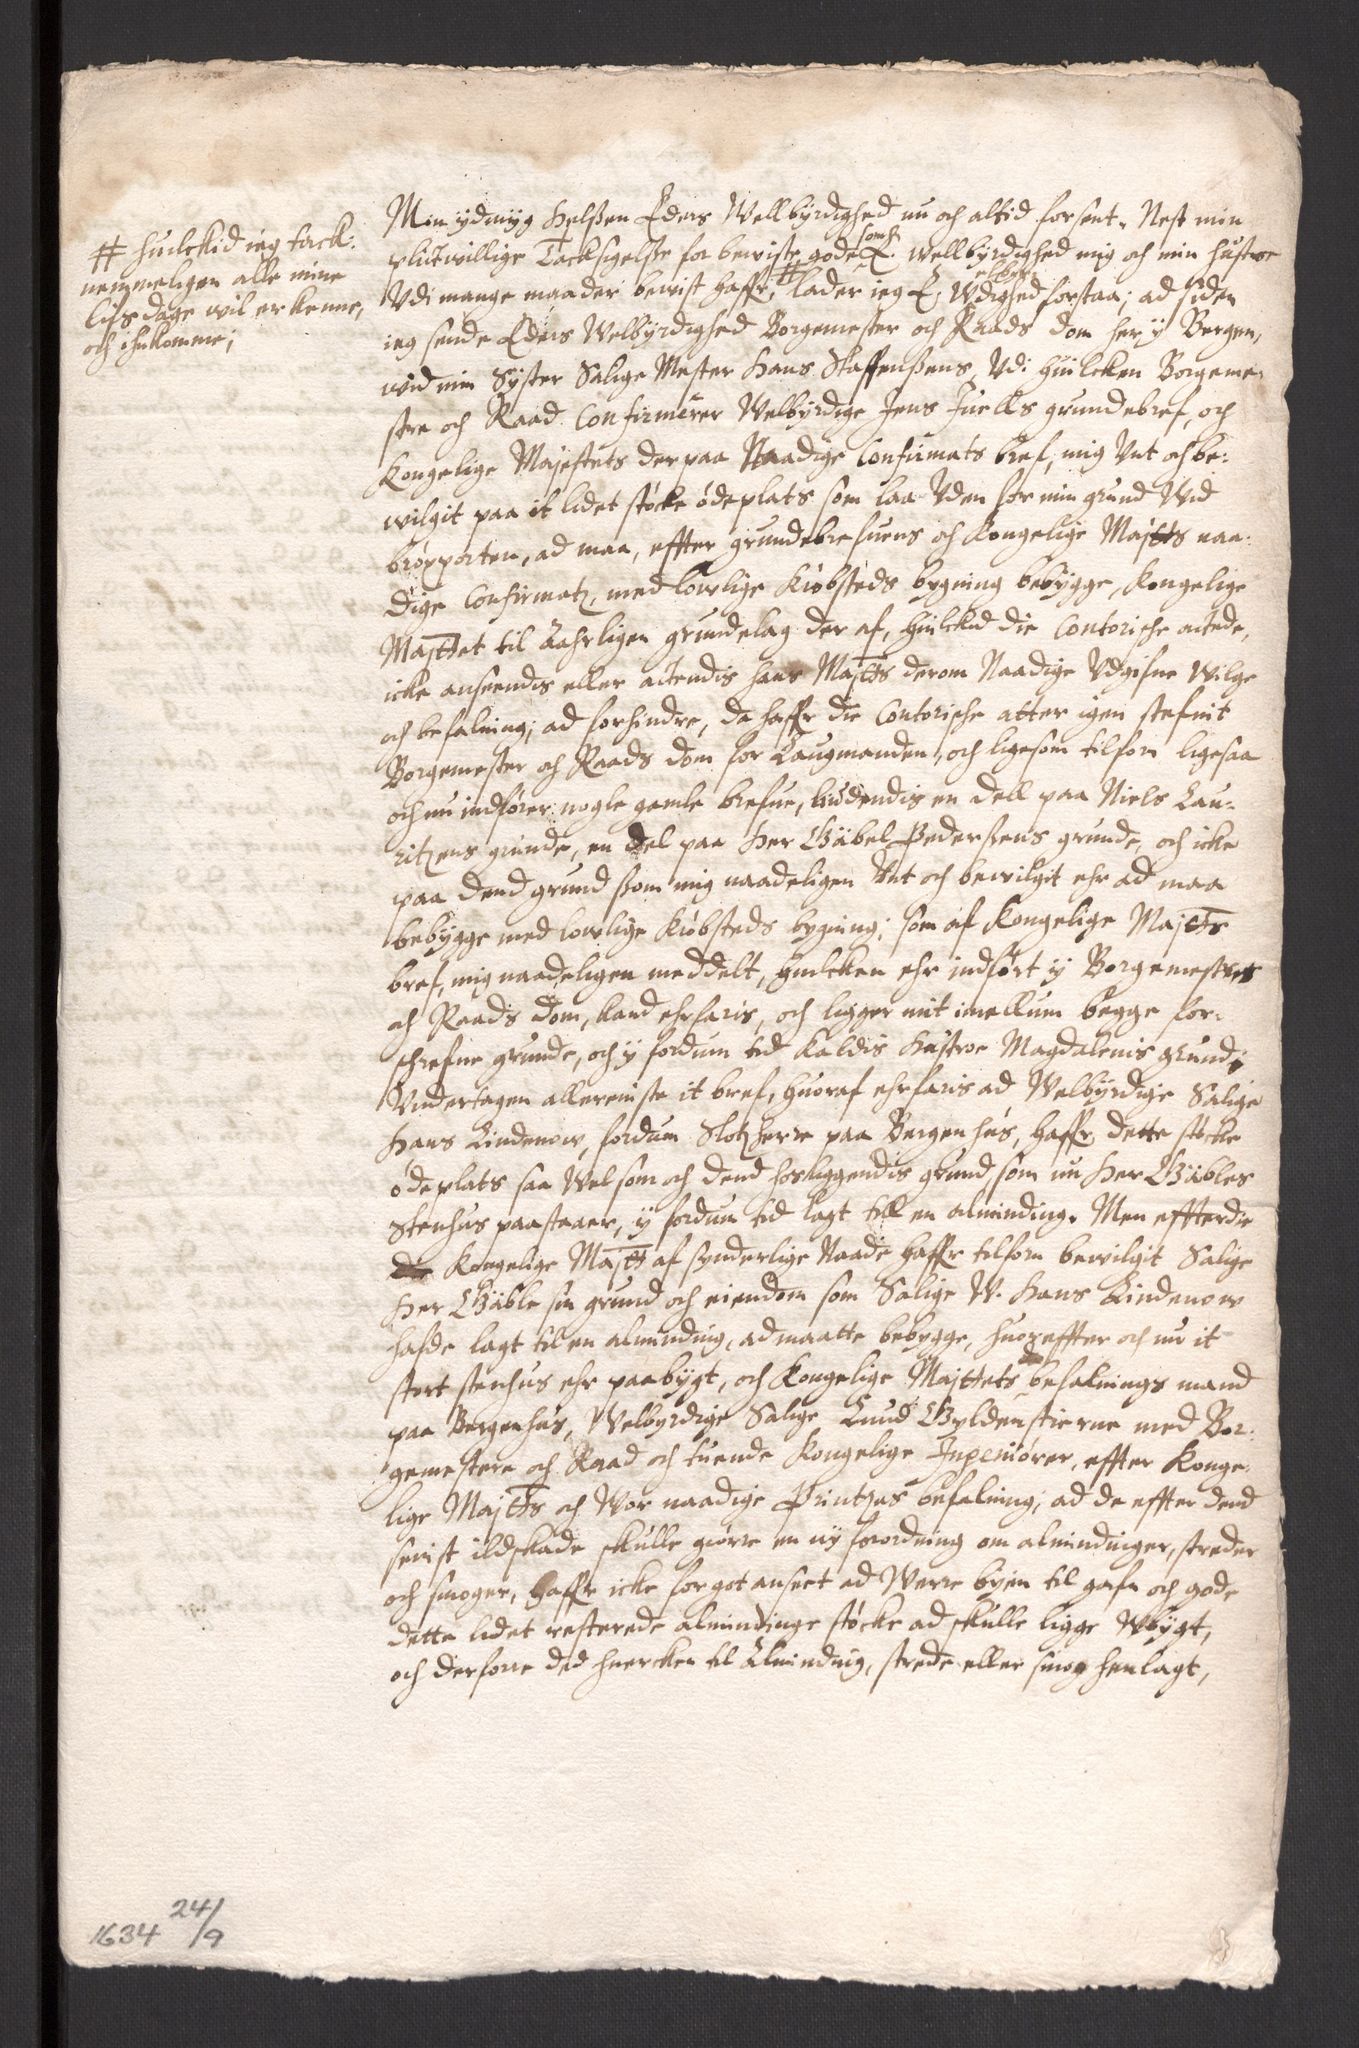 # huilckid ieg tack:
nemmeligen alle mine
lifs dage wil erkenne,
och ihukomme;
Min ydmyg helsßen Eders Wellbyrdighed nu och altid forsent. Nest min
plictwillige Tacksigelsße for bewiste gode som E. wellbyrdighed mig och min hustroe
Vdi mange maader bewist haffr, # lader ieg E. Wdighed forstaa; ad siden
ieg sende Eders Welbyrdighed Borgemester och Raads dom her y Bergen,
wid min Syster Salige Mester Hans Staffensßens, Vdi huilcken Borgeme-
stre och Raad Confirmerer Welbyrdige Jens Juels grundebref, och
Kongelige Majestets der paa Naadige Confirmats bref, mig Vnt och be-
wilgit paa it lidet støcke ødeplats som laa Vden for min grund Wid
broporten, ad maa, effter grundebrefuens och Kongelige Majtts naa-
dige Confirmatz, med lowlige Kiøbsteds bygning bebygge, Kongelige
Majttet til Aahrligen grundelag der af, huilckid die Contorische actede,
icke anseendis eller actendis hans Majtts derom Naadige Vdgifne Wilge
och befalning; ad forhindre, da haffr die Contorische atter igen stefnit
Borgemester och Raads dom for Laugmanden, och ligesom tilforn ligesaa
och nu indfører nogle gamle brefue, liudendis en dell paa Niels Lau-
ritzens grunde, en del paa Her Gäbel Pedersßens grunde, och icke
paa dend grund sßom mig naadeligen Vnt och bewilgit ehr ad maa
bebygge med lowlige Kiøbsteds bygning; som af Kongelige Majtts
bref, mig naadeligen meddelt, huilcken ehr indført y Borgemesters
och Raads dom, kand ehrfaris, och ligger mit imellum begge for-
schrefne grunde, och y fordum tid kaldis Hustroe Magdalenis grund;
Vndertagen allereniste it bref, huoraf ehrfaris ad Welbyrdige Salige
Hans Lindenow, fordum Slotzherre paa Bergenhus, haffr dette støcke
ødeplats saa Wel som och dend hosliggendis grund, som nu Her Gäbles
Stenhus paastaaer, y fordum tid lagt till en alminding. Men effterdie
Kongelige Majtt af synderlige Naade haffr tilforn bewilgit Salige
Her Gäble sin grund och eiendom som Salige W. Hans Lindenow
hafde lagt til en alminding, ad maatte bebygge, huoreffter och nu it
stort stenhus ehr paabygt, och Kongelige Majttets befalnings mand
paa Bergenhus, Welbyrdige Salige Knud Gyldenstierne med Bor-
gemestere och Raad och tuende Kongelige Ingeniører, effter Konge-
lige Majtts och Wor naadige Printzes befalning; ad de effter dend
senist ildskade skulle giørre en ny forordning om almindinger, streder
och smoger, haffr icke for got anseet ad Werre byen til gafn och gode
dette lidet resterede almindinge støcke ad skulle ligge Vbygt,
och derforre ded huercken til Alminding, strede eller smog henlagt,
1634 24/9